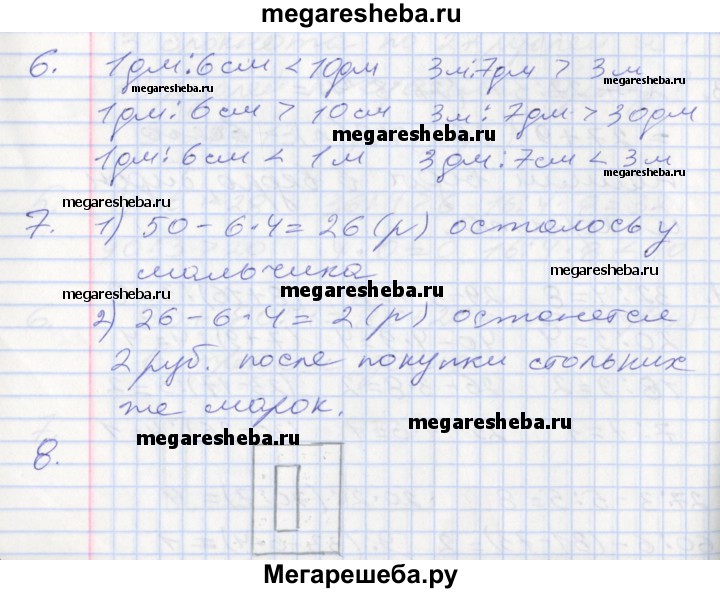 megaresheba.ru
6. 1дм:6см < 10дм 3м:7дм > 3м
megaresheba.ru
megaresheba.ru
1дм: 6см > 10см 3м: 7дм > 30дм
megaresheba.ru
1дм: 6см < 1м 3дм:7см < 3м
megaresheba.ru
megaresheba.ru
7. 1) 50-6·4=26(р) осталось у
мальчика
megaresheba.ru
megaresheba.ru
megaresheba.ru
2) 26-6·4=2(р) останется
2 руб. после покупки стольких
же марок.
megaresheba.ru
megaresheba.ru
8.
Мегарешеба.ру